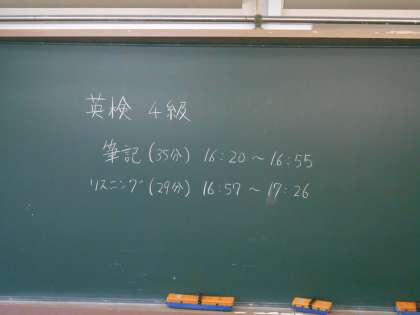 英検 4級
筆記(35分) 16:20〜16:55
リスニング(29分) 16:57〜17:26